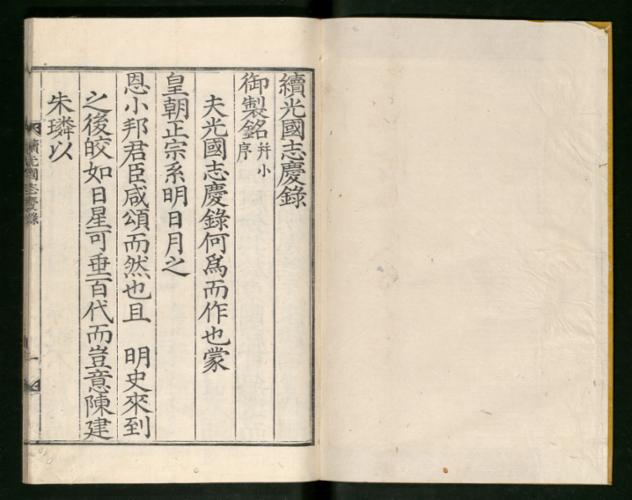 續光國志慶錄
御製銘幷小序
夫光國志慶錄何爲而作也蒙
皇朝正宗系明日月之
恩小邦君臣咸頌而然也且 明史來到
之後皎如日星可垂百代而豈意陳建
朱璘以
續光國志慶錄
一